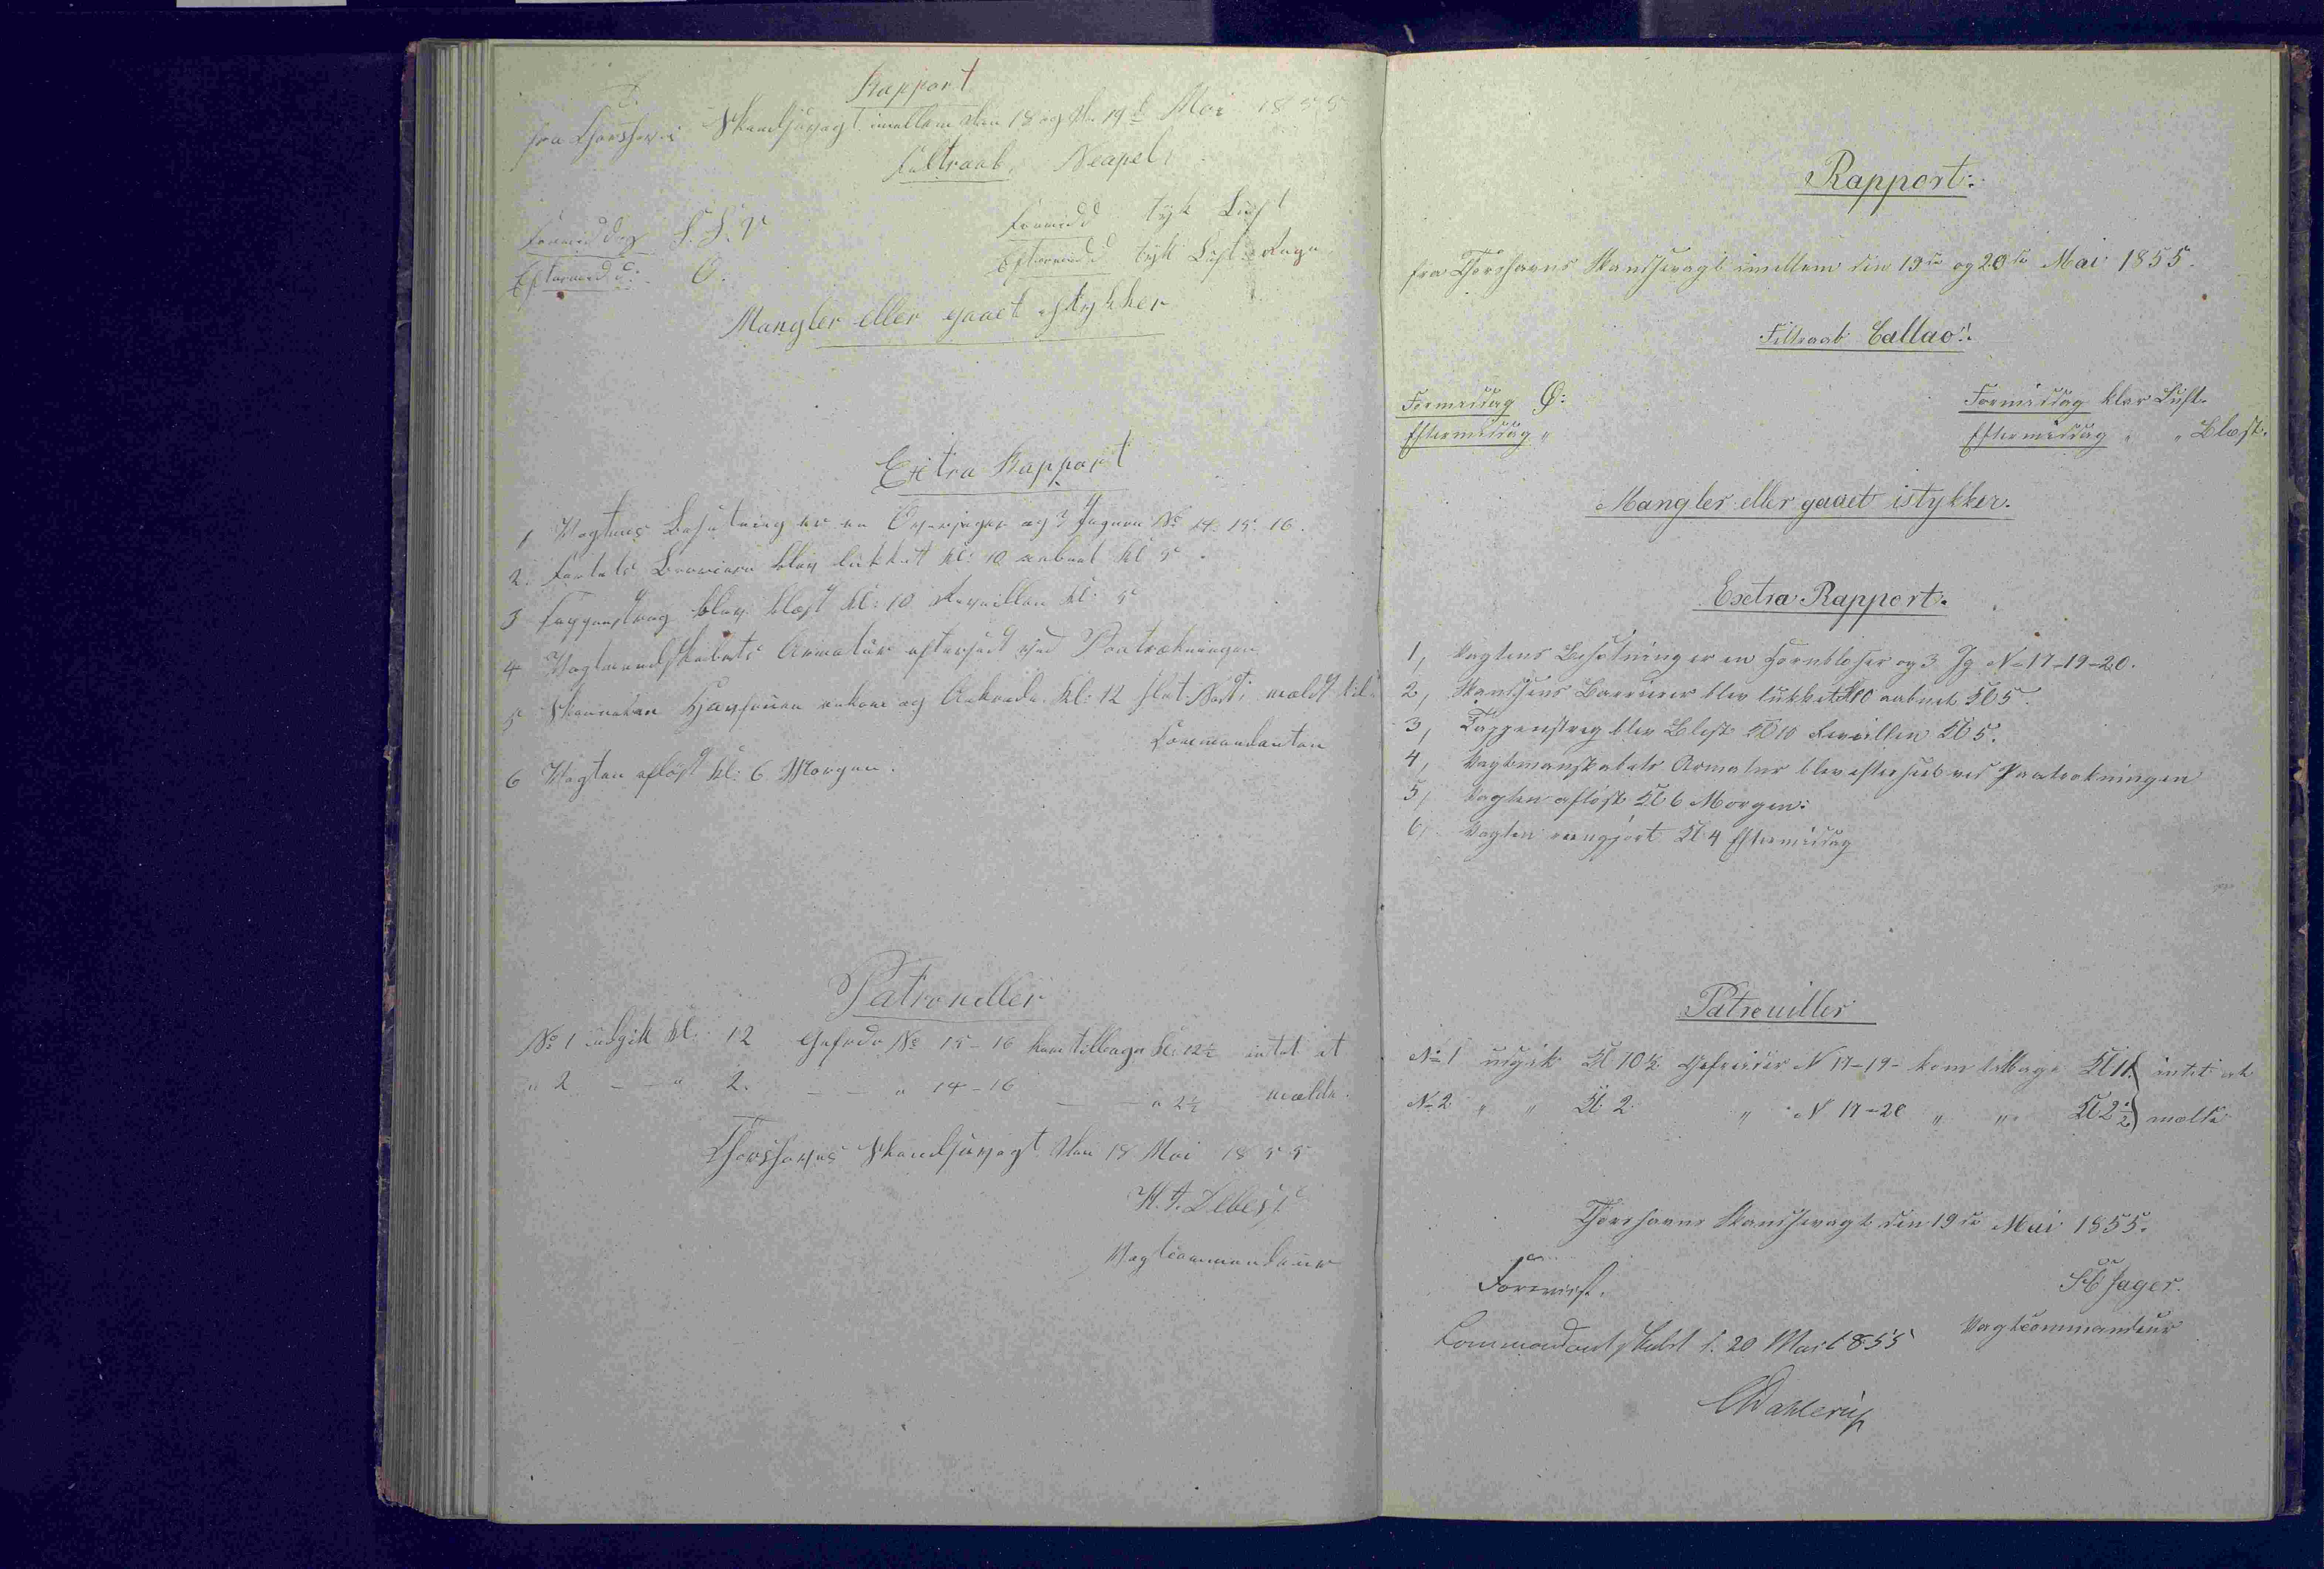 Rapport
fra Thorshavns Skandsevagt imellem den 18 og d. 19d Mai 1855
Feltraab, Neapel,
Formiddag S. S. V
Eftermidd: O.
Formidd tyk Luft
Eftermidd tyk Luft Regn
Mangler eller gaaet istykker
Extra Rapport
1 Vagtens Besætning er en Overjæger og 3 Jægere No 14. 15. 16.
2. Fortets Barriere blev lukket kl: 10 aabnet kl 5.
3 Tappenstreg blev blæst kl: 10 Reveillen kl: 5
4 Vagtmandskabets Armatur efterseet ved Paatrækningen
5 Skonnerten Havfruen ankom og Ankrede kl: 12 meldt til
Commandanten
6 Vagten afløst kl: 6 Morgen.
Patrouiller
No 1 udgik kl. 12 Gefrdr No 15-16 kom tilbage kl: 12½ intet at
" 2 — " 2. — — " 14-16 — — " 2½ melde.
Thorshavns Skandsevagt den 18 Mai 1855
H. J. Debes
Vagtcommandeur
Rapport.
fra Thorshavns Skandsevagt imellem den 19de og 20de Mai 1855.
Feltraab Callao".
Formiddag Ø:
Eftermiddag "
Formiddag klar Luft.
Eftermiddag " " Blæst.
Mangler eller gaaet istykker.
Exstra Rapport.
1, Vagtens Besætning er en Hornblæser og 3 Jg No 17-19-20.
2, Skandsens Barrierer blev lukket Kl 10 aabnet Kl 5.
3, Tappenstreg blev Blæst Kl 10 Revellien Kl 5.
4, Vagtmanskabets Armatur blev efterseet ved Paatrækningen
5, Vagten afløst Kl 6 Morgen:
6, Vagten reengjort Kl 4 Eftermiddag
Patrouiller
No 1 udgik Kl 10½ Gefreider N 17-19- kom tilbage Kl 11. intet at
No 2 " " Kl. 2 " N 17-20 " " Kl 2½ melde
Thorshavns Skandsevagt den 19de Mai 1855.
Forevist.
Jæger.
Vagtcommandeur
Commandantskabet d. 20 Mai 1855
CDahlerup